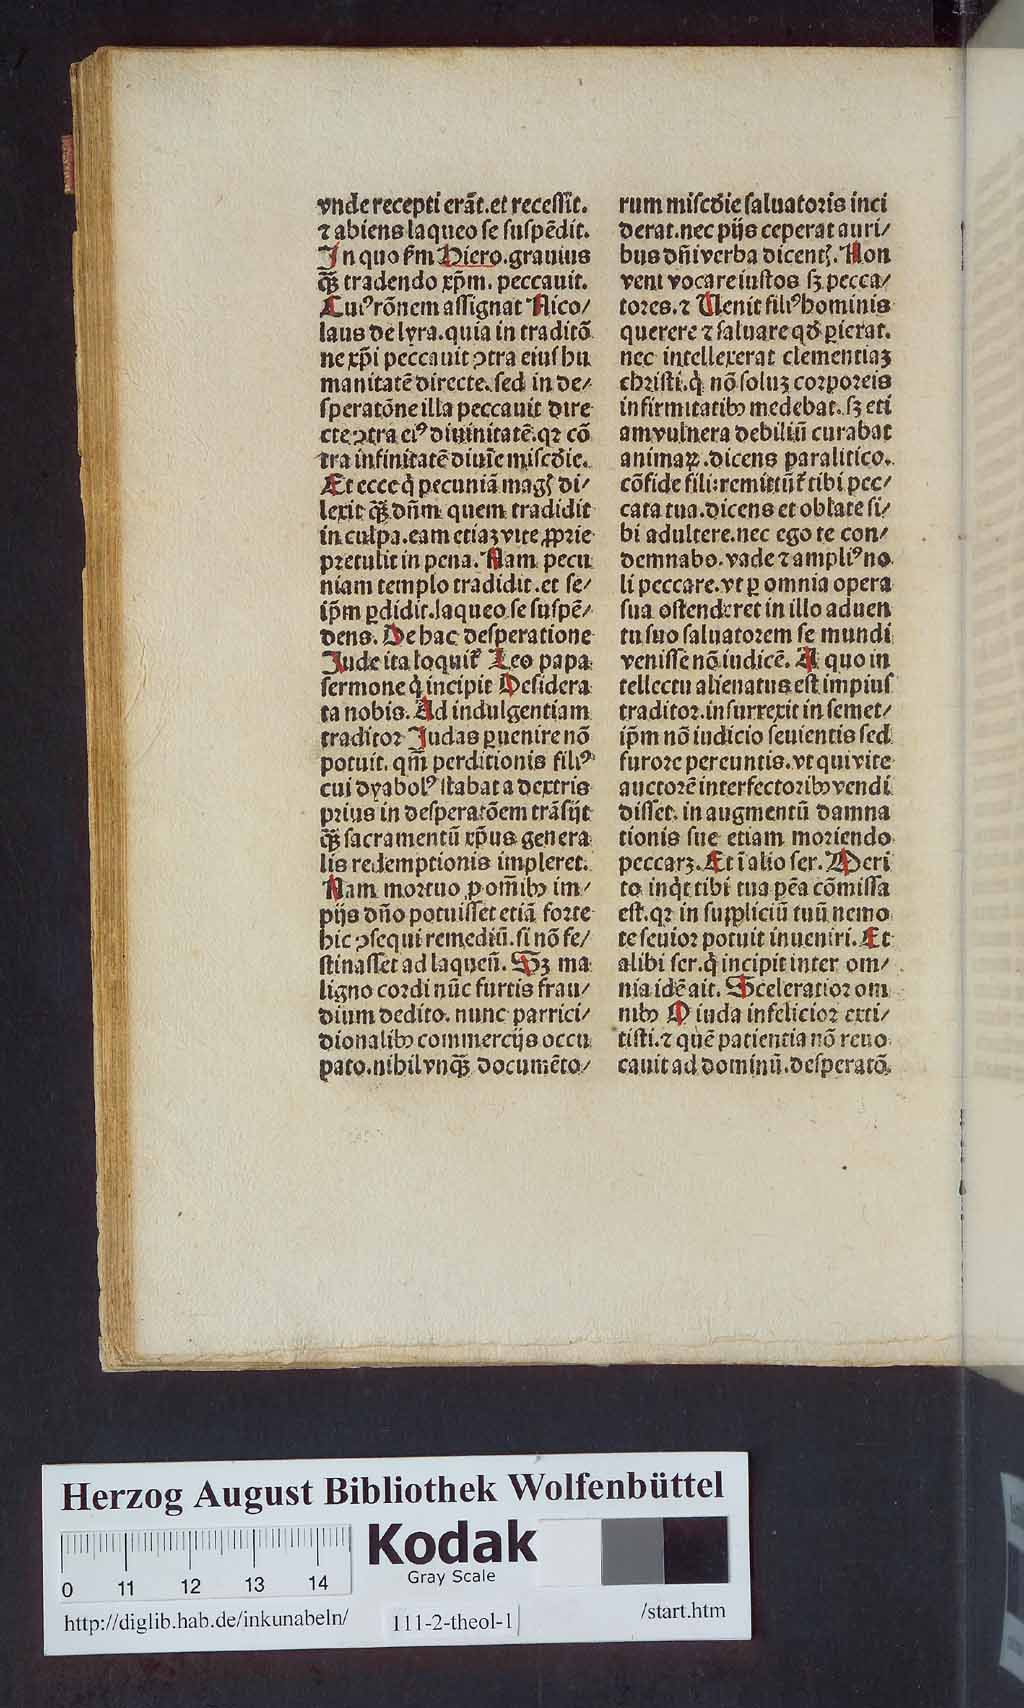 vnde recepti erāt.et recessit.
⁊ abiens laqueo se suspēdit.
In quo ẜm Hiero.grauius
q̄ꝫ tradendo xp̄m. peccauit.
Cuiꝰ rōnem assignat Nico/
laus de lyra.quia in traditō
ne xp̄i peccauit ↄtra eius hu
manitatē directe. sed in de/
speratōne illa peccauit dire
cte ↄtra eiꝰ diuinitatē.qꝛ cō
tra infinitatē diuīe miscd̄ie.
Et ecce q̇ pecuniā magꝭ di/
lexit q̄ꝫ dn̄m quem tradidit
in culpa.eam etiaꝫ vite ꝓprie
pretulit in pena. Nam pecu
niam templo tradidit.et se/
ip̄m ꝑdidit.laqueo se suspē/
dens. De hac desperatione
Jude ita loquit᷑ Leo papa
sermone q̇ incipit Desidera
ta nobis. Ad indulgentiam
traditor Judas ꝑuenire nō
potuit. qm̄ perditionis filiꝰ
cui dyabolꝰ stabat a dextris
prius in desperatōem trāsijt
q̄ꝫ sacramentū xp̄us genera
lis redemptionis impleret.
Nam mortuo ꝓ om̄ibꝫ im/
pijs dn̄o potuisset etiā forte
hic ↄsequi remediū.si nō fe/
stinasset ad laqueū. Sꝫ ma
ligno cordi nūc furtis frau/
dium dedito. nunc parrici/
dionalibꝫ commercijs occu
pato.nihil vnq̄ꝫ documēto/
rum miscd̄ie saluatoris inci
derat.nec pijs ceperat auri/
bus dn̄i verba dicentꝭ. Non
veni vocare iustos sꝫ pecca/
tores.⁊ Uenit filiꝰ hominis
querere ⁊ saluare qd̄ ꝑierat.
nec intellexerat clementiaꝫ
christi.q̇ nō soluꝫ corporeis
infirmitatibꝫ medebat᷑.sꝫ eti
am vulnera debiliū curabat
animaꝝ.dicens paralitico.
cōfide fili:remittūt᷑ tibi pec/
cata tua.dicens et oblate si/
bi adultere.nec ego te con/
demnabo.vade ⁊ ampliꝰ no
li peccare.vt ꝑ omnia opera
sua ostenderet in illo aduen
tu suo saluatorem se mundi
venisse nō iudicē. A quo in
tellectu alienatus est impius
traditor.insurrexit in semet/
ip̄m nō iudicio seuientis sed
furore pereuntis.vt qui vite
auctorē interfectoribꝫ vendi
disset. in augmentū damna
tionis sue etiam moriendo
peccarꝫ. Et ī alio ser. Meri
to inq̇t tibi tua pēa cōmissa
est.qꝛ in suppliciū tuū nemo
te seuior potuit inueniri. Et
alibi ser.q̇ incipit inter om/
nia idē ait. Sceleratior om
nibꝫ O iuda infelicior exti/
tisti.⁊ quē patientia nō reuo
cauit ad dominū.desperatō
Herzog August Bibliothek Wolfenbüttel
Kodak
Gray Scale
0 11 12 13 14
http://diglib.hab.de/inkunabeln/ 111-2-theol-1 /start.htm